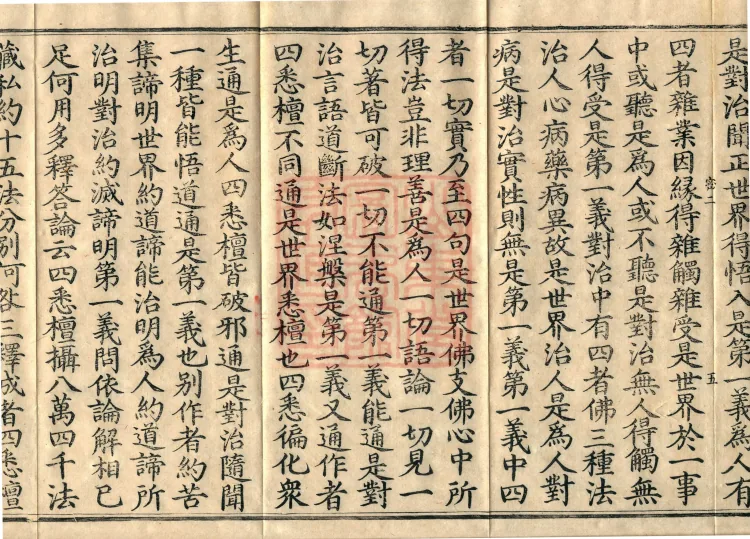 是對治聞正世界得悟入是第一義為人有
四者雜業因縁得雜觸雜受是世界於一事
密二
五
中或聽是為人或不聽是對治無人得觸無
人得受是第一義對治中有四者佛三種法
治人心病藥病異故是世界治人是為人對
病是對治實性則無是第一義第一義中四
者一切實乃至四句是世界佛支佛心中所
得法豈非理善是為人一切語論一切見一
切著皆可破一切不能通第一義能通是對
治言語道斷法如涅槃是第一義又通作者
四悉檀不同通是世界悉檀也四悉徧化衆
生通是爲人四悉檀皆破邪通是對治隨聞
一種皆能悟道通是第一義也別作者約苦
集諦明世界約道諦能治明爲人約道諦所
治明對治約滅諦明第一義問依論解相已
足何用多釋答論云四悉檀攝八萬四千法
藏私約十五法分別可
三釋成者四悉檀